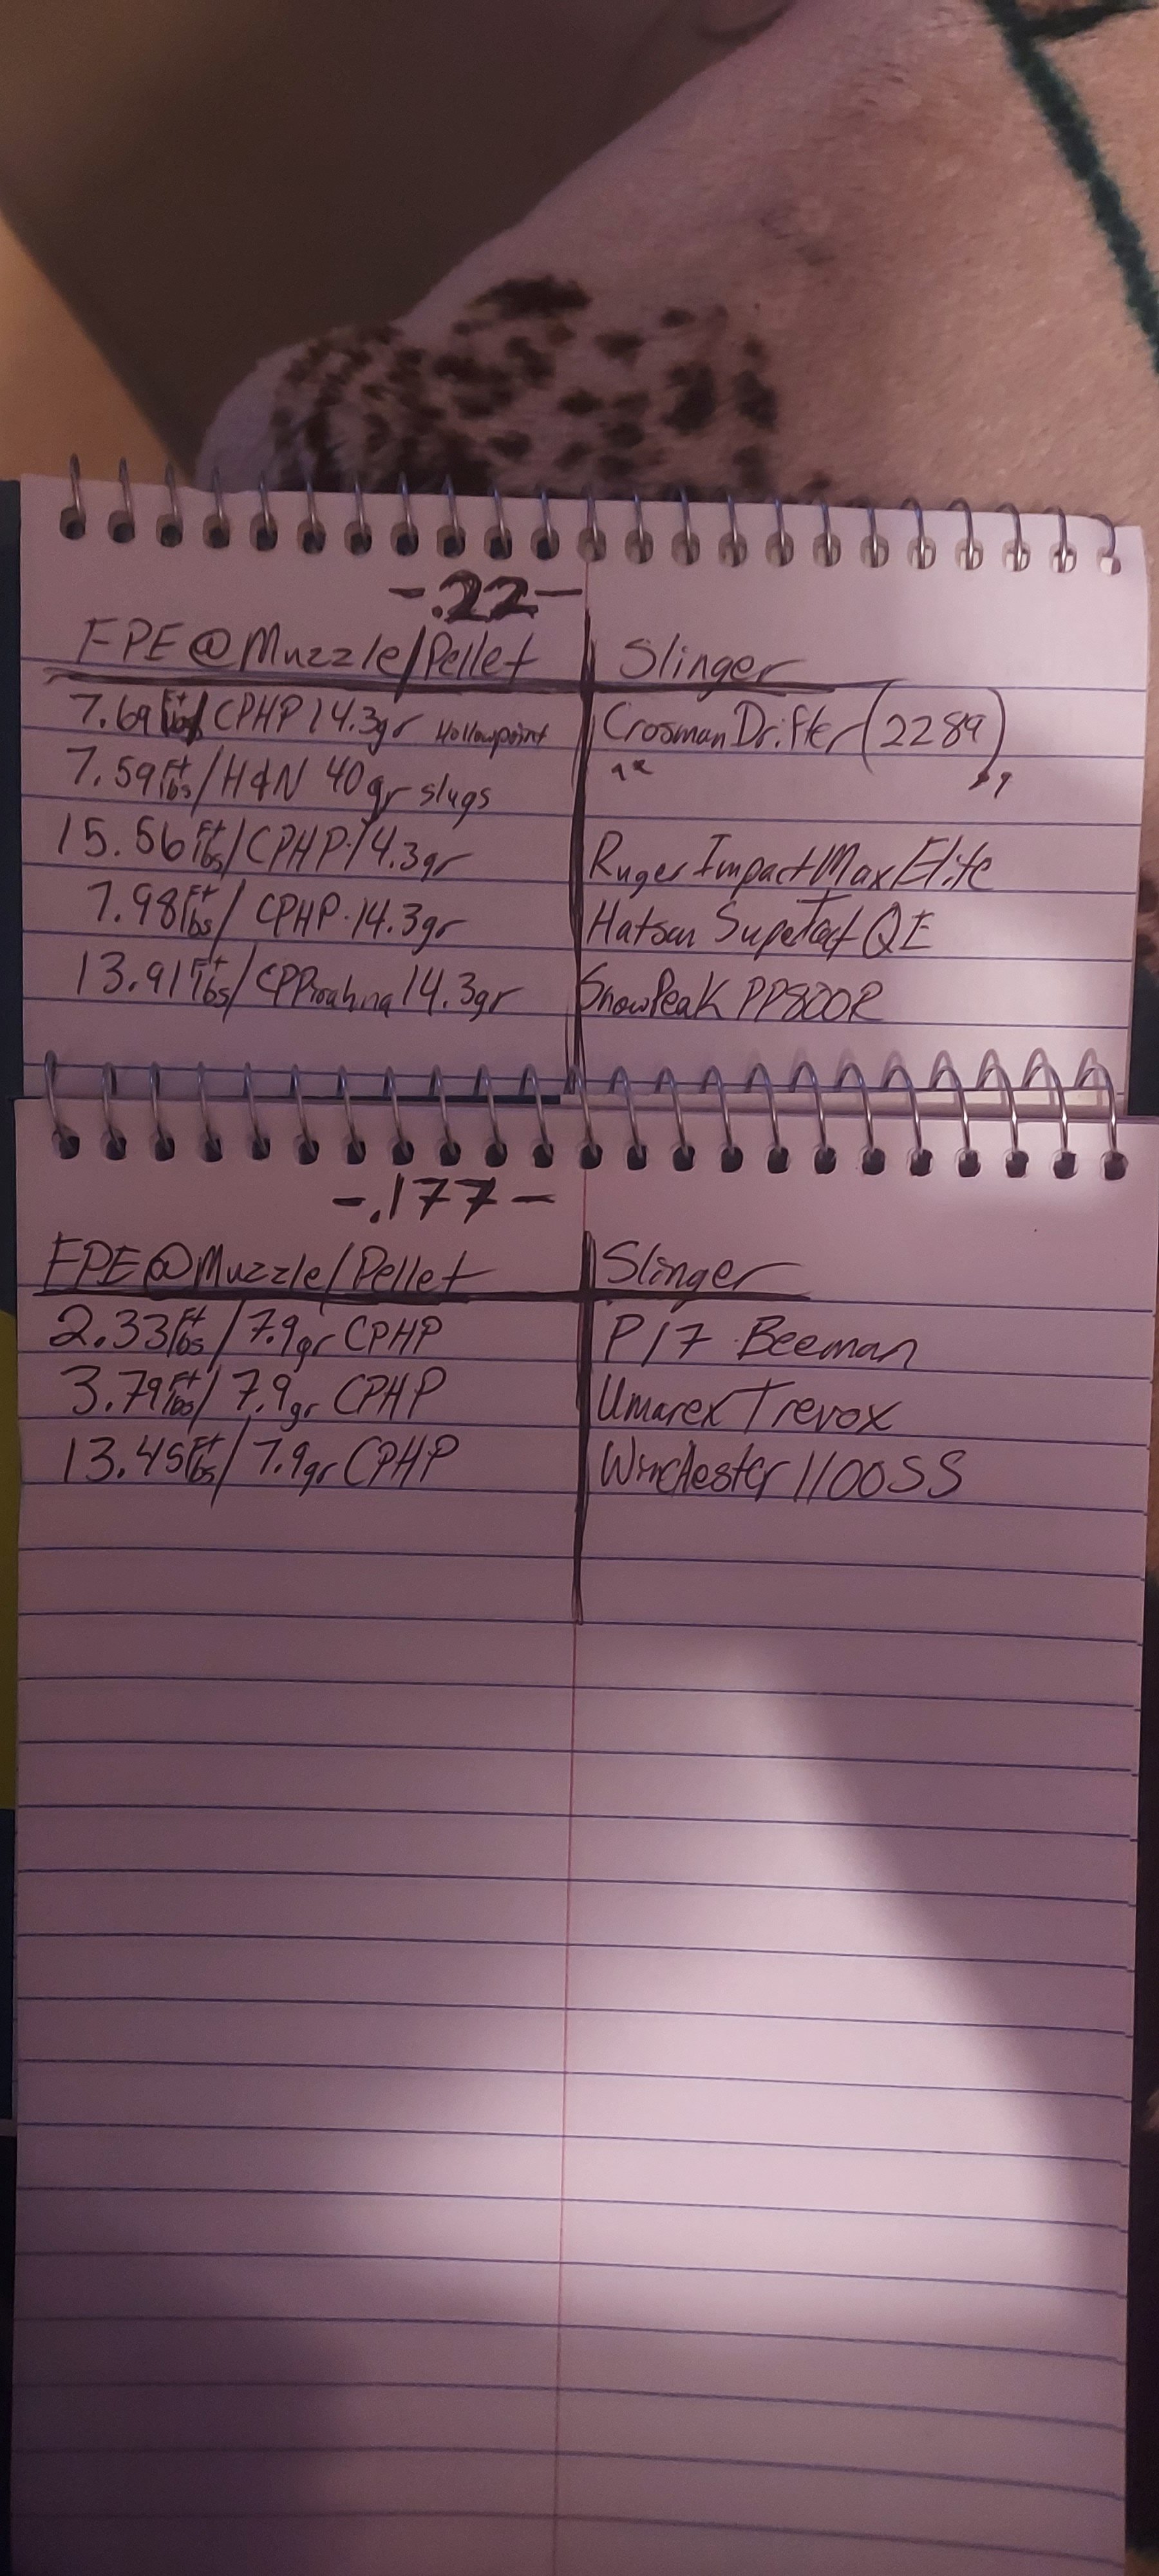 -.22-
FPE@Muzzle/Pellet Slinger
7.69 ft lbs/CPHP 14.3gr Hollowpoint Crosman Drifter (2289)
7.59 ft lbs/H&N 40gr slugs
15.56 ft lbs/CPHP·14.3gr Ruger Impact Max Elite
7.98 ft lbs/ CPHP·14.3gr Hatsan QE
13.91 ft lbs/ 14.3gr SnowPeak PP800R
-.177-
FPE@Muzzle/Pellet Slinger
2.33 ft lbs/7.9gr CPHP P17 Beeman
3.79 ft lbs/7.9gr CPHP Umarex Trevox
13.45 ft lbs/7.9gr CPHP Winchester 1100SS